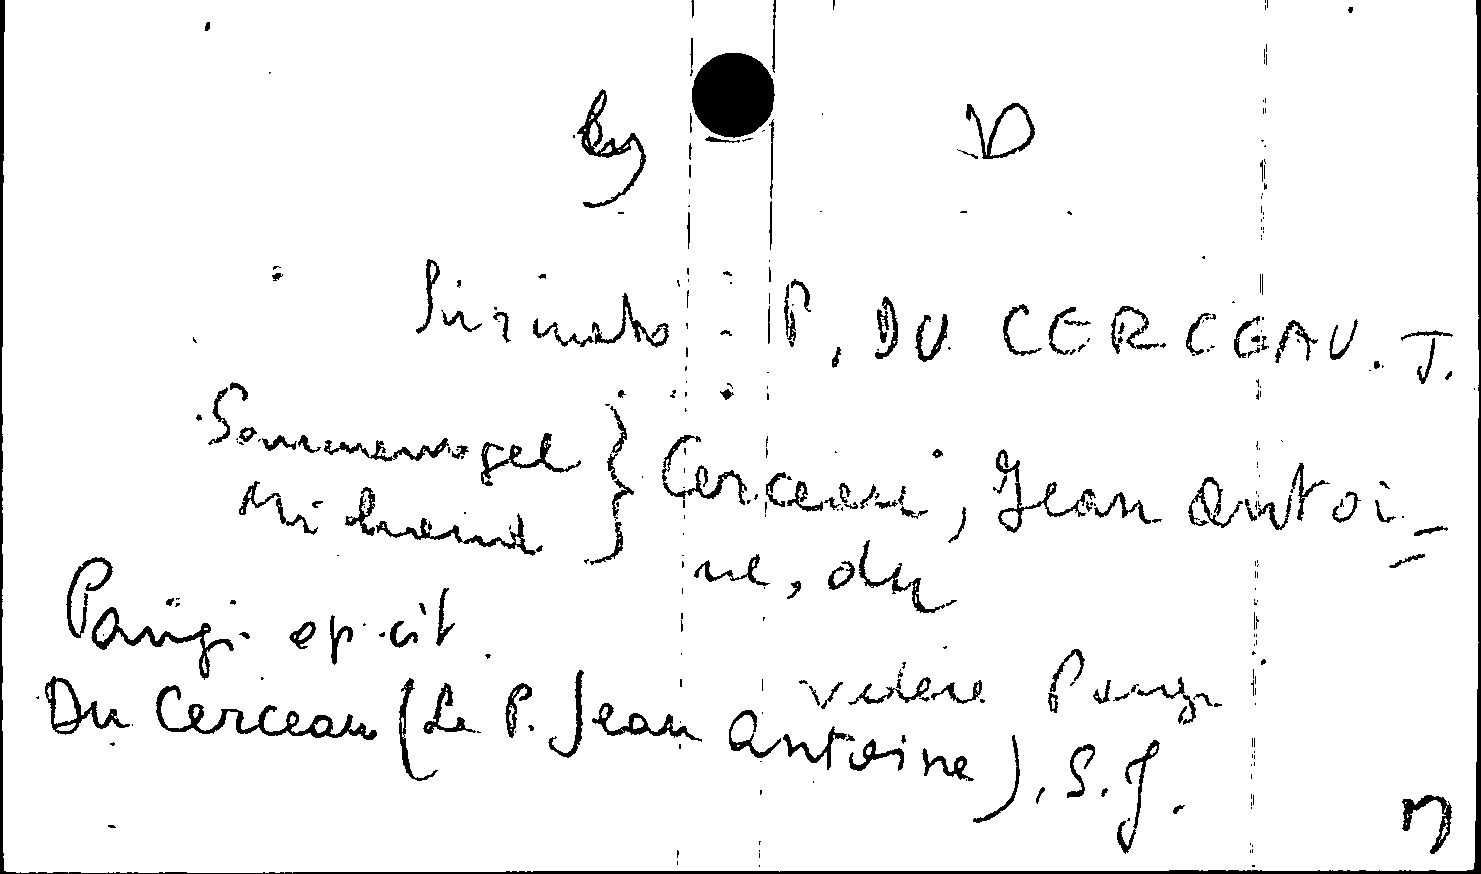 D
Firmato : P. DU CERCEAU. J.
Sommervogel } Cerceau, Jean Antoi=
Michaud } ne, du
Parigi op. cit.
vedere Parigi
Du Cerceau (Le P. Jean Antoine), S.J.